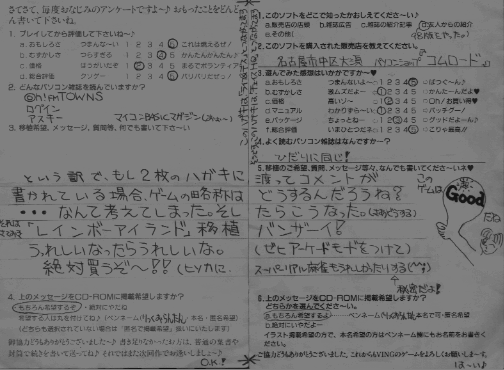 さてさて、毎度おなじみのアンケートですよ〜♪ おもったことをどんどん書いて下さいね。
1. プレイしてから評価して下さいね〜♪
a.おもしろさ　つまんない〜 1 2 3 4 5 これは燃えるぜ!
b.むずかしさ　つらすぎる 1 2 3 4 5 かんたんかんたん♪
c.価格　ぼったくりだぞ 1 2 3 4 5 まるでボランティア
d.総合評価　クソゲー 1 2 3 4 5 バリバリだぜっ!
2. どんなパソコン雑誌を読んでいますか?
Oh!FM TOWNS
ログイン
アスキー
マイコンBASICマガジン
3. 移植希望、メッセージ、質問等、何でも書いて下さ〜い
という訳で、もし2枚のハガキに
書かれている場合、ゲームの略称は
・・・なんて考えてしまった。そし
「レインボーアイランド」移植
うれしいなったらうれしいな。
絶対買うぞ〜!! (ヒソカに.
4. 上のメッセージをCD-ROMに掲載希望しますか?
もちろん希望するぞ・絶対にやだね
希望する人は丸を付けてね♪
(どちらも選択されていない場合は「匿名で掲載希望」扱いにいたします)
御協力どうもありがとうございました〜♪ 書き足りなかったお方は、普通の葉書や
封筒で続きを書いて送ってね♪ それではまた次回作でお逢いしましょ〜♪
O.K.!
1.このソフトをどこで知ったかおしえてくださ〜い♪
a.販売店の店頭 b.雑誌広告 c.雑誌の紹介記事 d.友人からの紹介
e.その他(
2.このソフトを購入された販売店を教えてください。
名古屋市中区大須 パソコンショップ「コムロード」
3.遊んでみた感想はいかがですか〜♥
a.おもしろさ　つまんないよ〜 1 2 3 4 5 ばつぐ〜ん♪
b.むずかしさ　激ムズだよ〜 1 2 3 4 5 かんた〜んだよ♥
c.価格　高いゾ〜 1 2 3 4 5 Oh! お買い得♥
d.マニュアル　わかりずら〜い 1 2 3 4 5 バッチグー!
e.パッケージ　ちょっとね〜 1 2 3 4 5 グッドだよ〜ん♪
f.総合評価　いまひとつだネ 1 2 3 4 5 こりゃ最高!!
4.よく読むパソコン雑誌はなんですか〜?
ひだりに同じ!
5.移植のご希望、質問、メッセージ等々、なんでも書いてくださ〜いネ♥
渡ってコメントが
どうするんだろうね?
たらこうなった。
バンザーイ!
(ぜひアーケードモードをつけて)
スーパーリアル麻雀もうれしかったりする(^^;)
秘密だよ!
このゲームは
Good
だね
6.上のメッセージをCD-ROMに掲載希望しますか?
どちらかを選んでくださ〜い。
a.もちろん希望するよ
b.絶対にいやだよ〜
イラスト掲載希望の方で、本名希望の方はペンネーム欄にもお名前をお書きください。
ご協力どうもありがとうございました。これからもVINGのゲームをよろしくお願いします。
は〜い♪